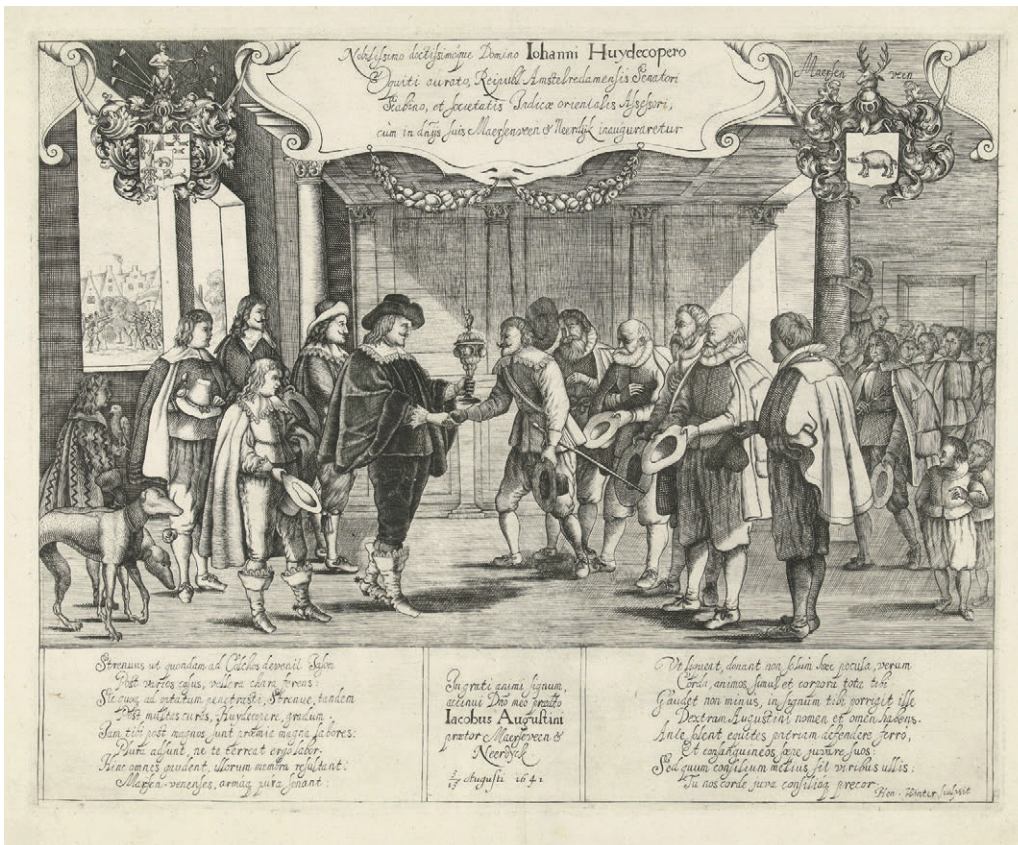 Nobilissimo doctissimoque Domino Iohanni Huydecopero
Equiti aurato, Reipubl Amstelredamensis Senatori
Scabino, et societatis Indicæ orientalis Assessori,
cùm in dnijs suis Maerseveen & Neerdijk inauguraretur
Maersen veen
Strenuus ut quondam ad Colchos devenit Iason
Post varios casus, vellera chara ferens:
Sic quoq ad optatum penetrasti, Strenue, tandem
Post multas curas, Huydecopere, gradum.
Iam tibi post magnos sunt præmia magna labores:
Plura adsunt, ne te terreat ergo labor.
Hinc omnes gaudent, illorum memora resultant:
Marsen-venenses, armaq jura sonant:
In grati animi signum,
accinui Dno meo prætor
Iacobus Augustini
prætor Maerseveen &
Neerdyck
Augusti 1641
Ut liqueat, donant non solum hæc pocula, verum
Corda, animos simul et corpora tota tibi
Gaudet non minus, in signum tibi porrigit ille
Dextram Augustini nomen et omen habens.
Ante solent equites patriam defendere ferro,
Et consanguineos sæpe juvare suos:
Sed quum consilium melius sit viribus ullis:
Tu nos corde juva consilioq precor.
Hen. Winter sculpsit